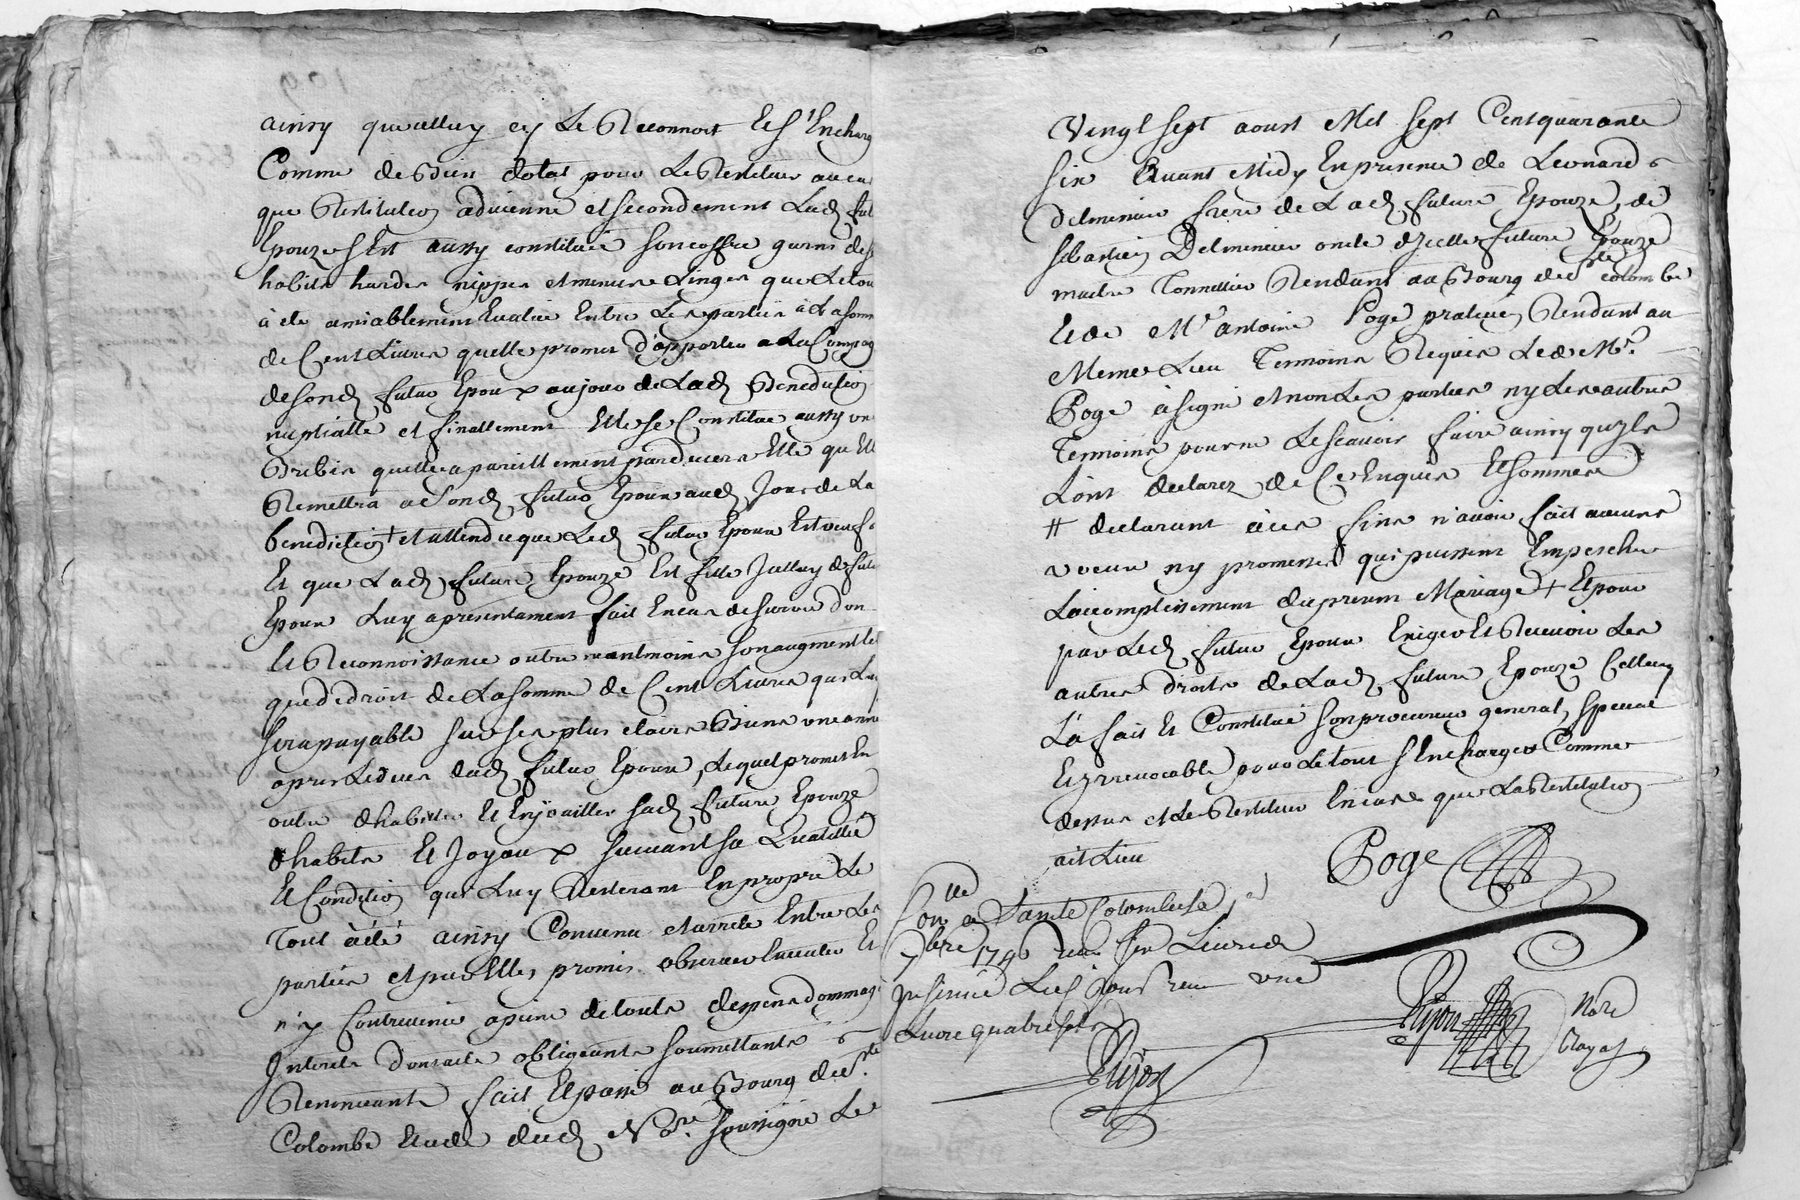 ainsy que celluy cy Le Reconnoit Et s'Encharg
Comme de Bien dotal pour Le Restituer au cas
que Restitution advienne et secondement Lad fut
Epouze s'Est aussy constituée son coffre garni de s
habits hardes nippes et menus Linges que Le tou
à été amiablement Evalué Entre Les parties à La som
de Cent Livres quelle promet d'apporter a La Compag
de sond futur Epoux au jour de Lad Benediction
nuptialle et finallement Elle se Constitue aussy un
Brebis quelle a pareillement pardevers Elle qu'Ell
Remettra a Sond futur Epoux aud Jour de La
benediction + et attendu que Led futur Epoux Est veuf
Et que Lad future Epouze Est fille Jcelluy d futu
Epoux Luy a presentement fait En cas de survie don
Et Reconnoissance outre neantmoins son augment te
que de droit de La somme de Cent Livres qui Luy
sera payable sur ses plus clairs Biens une anné
apres Le deces dud futur Epoux, Lequel promet En
outre d'habiller Et Enjoailler sad future Epouze
d'habits Et Joyaux suivant sa Qualitté
Et Condition qui Luy Resteront En propre Le
Tout à été ainsy Convenu et arreté Entre Les
parties et par Elles promis observer Executer Et
n'y Contrevenir a peine de touts depens dommag
Interets dont acte obligeants soumettants
Renonceants fait Et passé au Bourg de Ste
Colombe Etude dud Nore soussigné Le
Vingt sept aoust Mil sept Cent quarante
six Avant Midy En presence de Leonard
delmenier frere de Lad future Epouze, de
sebastien Delmenier oncle d'Jcelle future Epouze
maitre Tonnellier Rendant au Bourg de Ste colombe
Et de Me antoine Poge praticien Rendant au
Meme Lieu Temoins Requis Led Mr
Poge à signé et non Les parties ny Les autres
Temoins pour ne Le scavoir faire ainsy qu'Jls
L'ont declarez de Ce Enquis Et sommes
# declarant à ces fins n'avoir fait aucuns
voeux ny promesses qui puissent Empescher
L'accomplissement du present Mariage + Et pour
par Led futur Epoux Exiger Et Recevoir Les
autres droits de Lad future Epouze Celluy
L'a fait Et Constitué son procureur general, special
Et Jrrevocable pour Le tout s'Encharger Comme
dessus et Le Restituer En cas que La Restitution
ait Lieu
Poge
Conlle a Sainte Colombe Le
7bre 1746 reçu six Livres
Jnsinué Led Jour reçu une
Livre quatre sols
Pijon
Pijon Nore
Royal